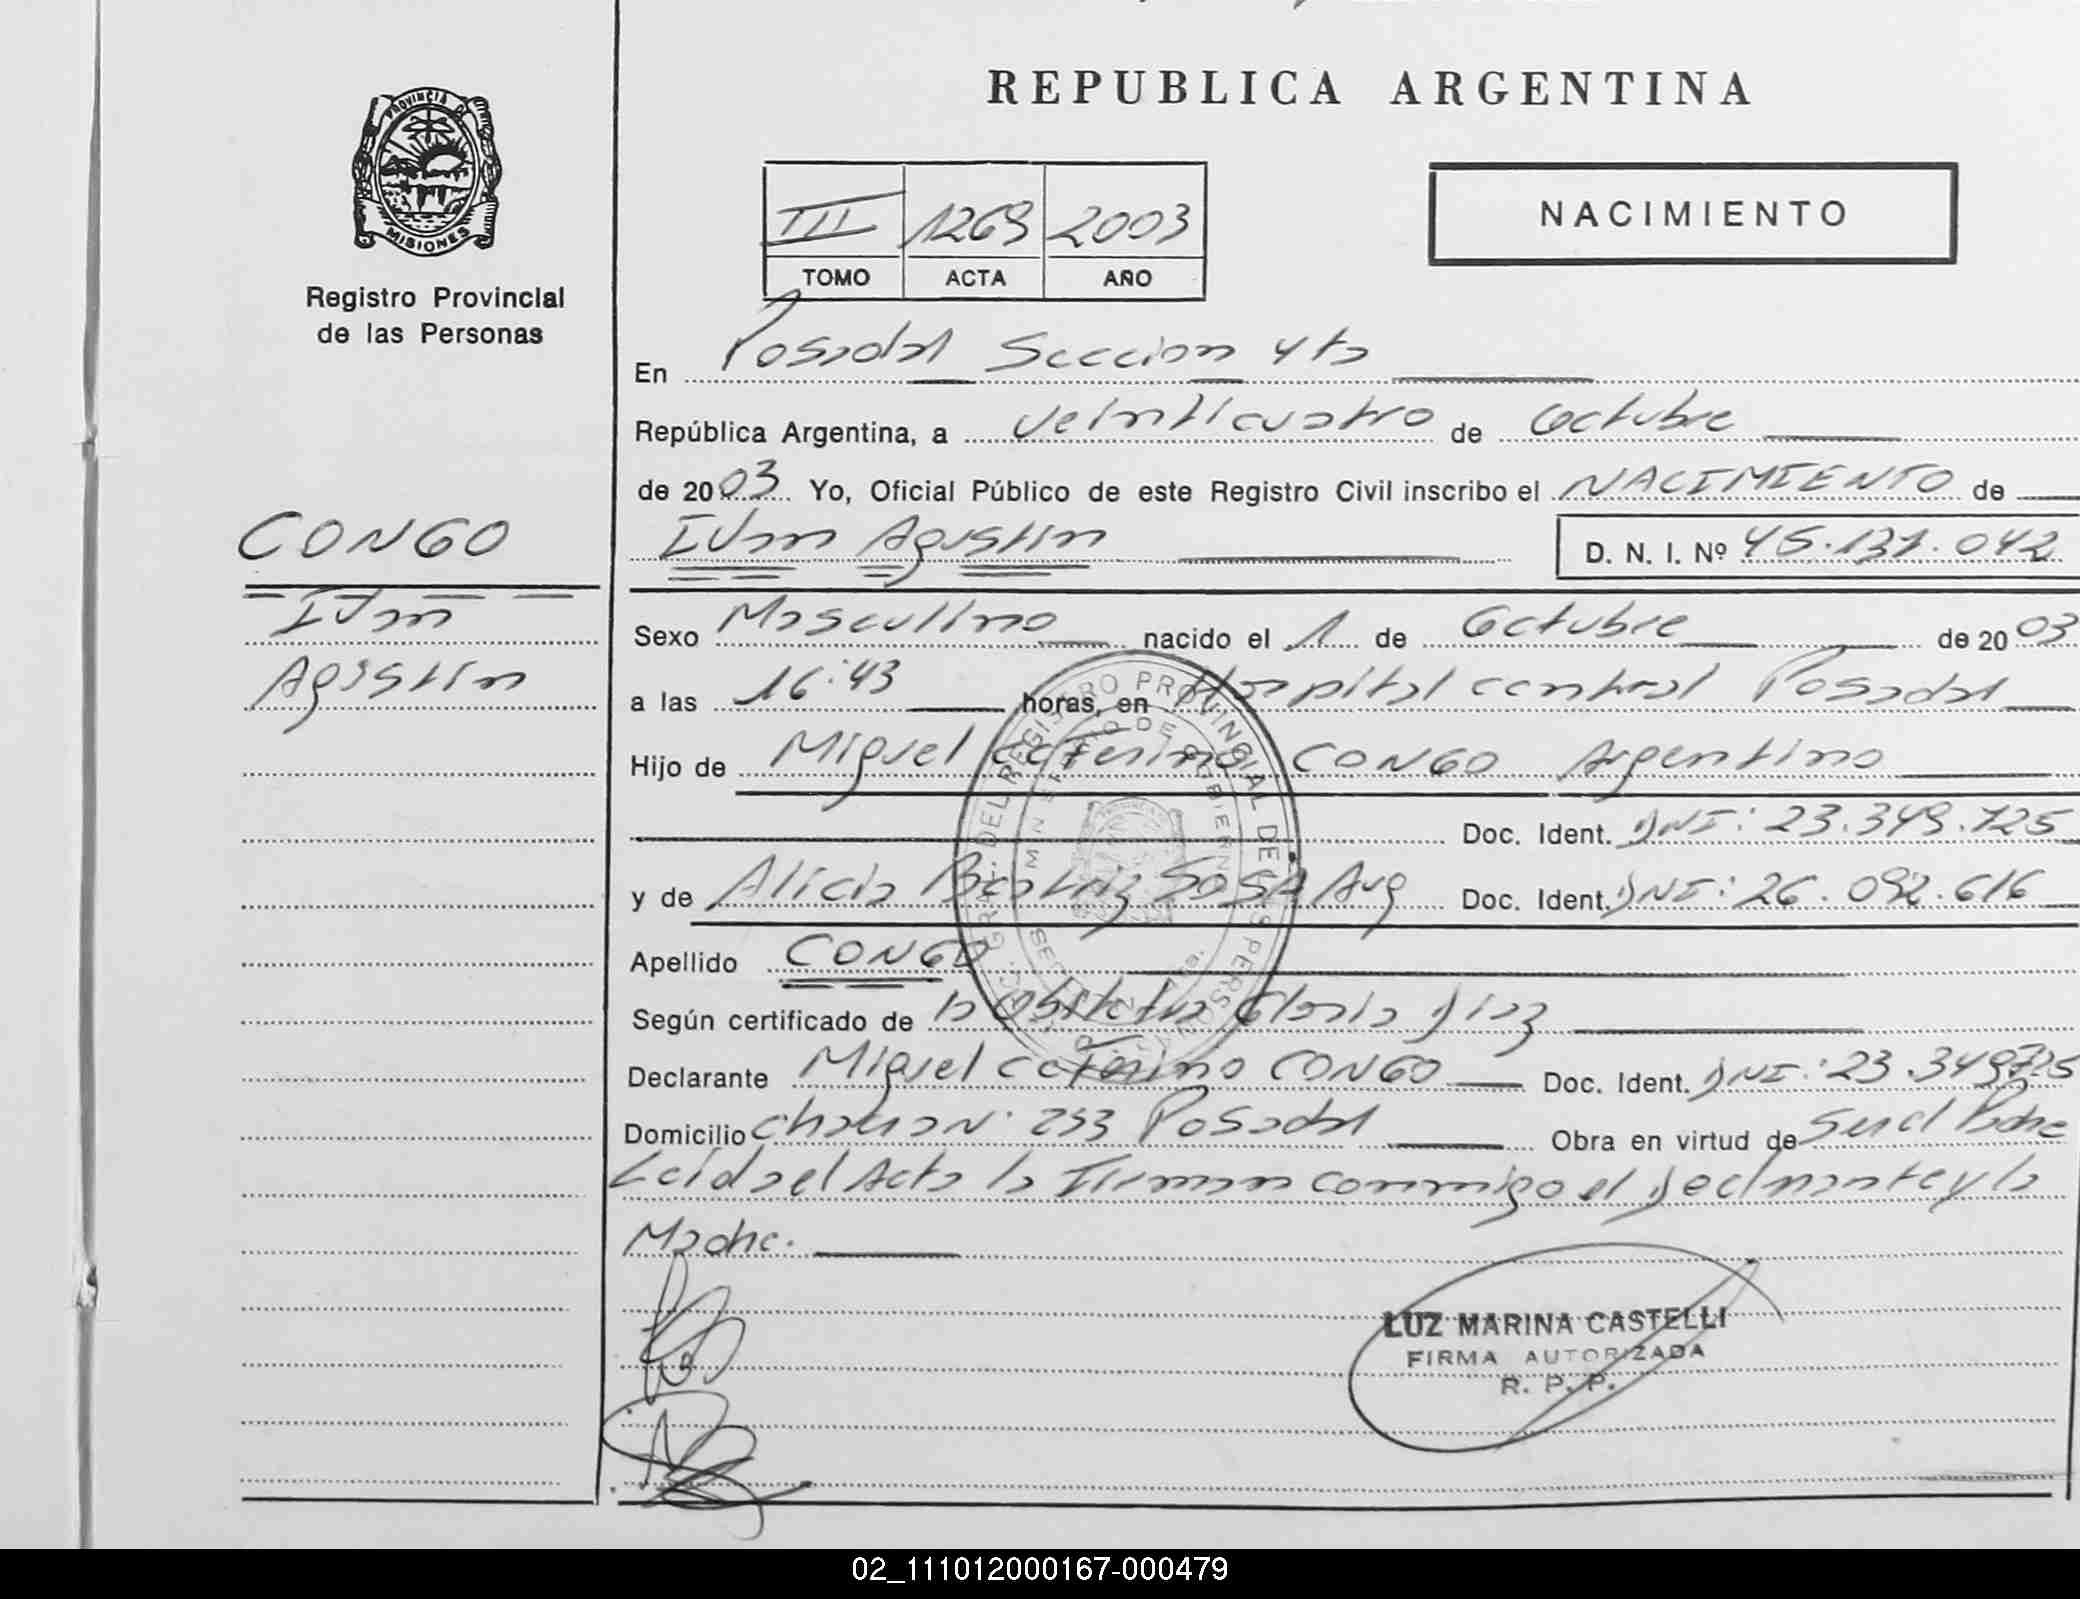 REPUBLICA ARGENTINA
PROVINCIA DE
MISIONES
Registro Provincial
de las Personas
III 1269 2003
TOMO ACTA AÑO
NACIMIENTO
En Posadas Seccion 4ta
República Argentina, a veinticuatro de Octubre
de 2003 Yo, Oficial Público de este Registro Civil inscribo el NACIMIENTO de
Ivan Agustin D. N. I. Nº 45.131.042
CONGO
Ivan
Agustin
Sexo Masculino nacido el 1 de Octubre de 2003
a las 16:43 horas, en Hospital central Posadas
Hijo de Miguel Ceferino CONGO Argentino
Doc. Ident. DNI: 23.349.725
y de Alicia Beatriz SOSA Arg Doc. Ident. DNI: 26.092.616
Apellido CONGO
Según certificado de la Obstetra Gloria Diaz
Declarante Miguel Ceferino CONGO Doc. Ident. DNI: 23.349725
Domicilio 253 Posadas Obra en virtud de ser el Padre
Leida el Acta la Firman conmigo el Declarante y la
Madre.
LUZ MARINA CASTELLI
FIRMA AUTORIZADA
R. P. P.
02_111012000167-000479